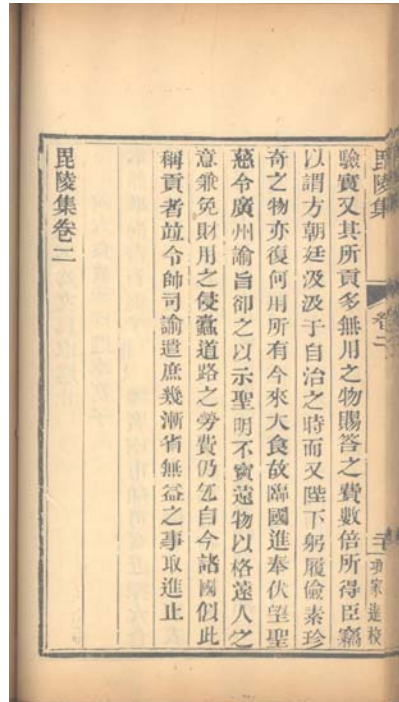 毘陵集
卷二
三
功家進校
驗實又其所貢多無用之物賜答之費數倍所得臣竊
以謂方朝廷汲汲于自治之時而又陛下躬履儉素珍
奇之物亦復何用所有今來大食故臨國進奉伏望聖
慈令廣州諭旨卻之以示聖明不寳遠物以格遠人之
意兼免財用之侵蠹道路之勞費仍乞自今諸國似此
稱貢者竝令帥司諭遣庶幾漸省無益之事取進止
毘陵集卷二